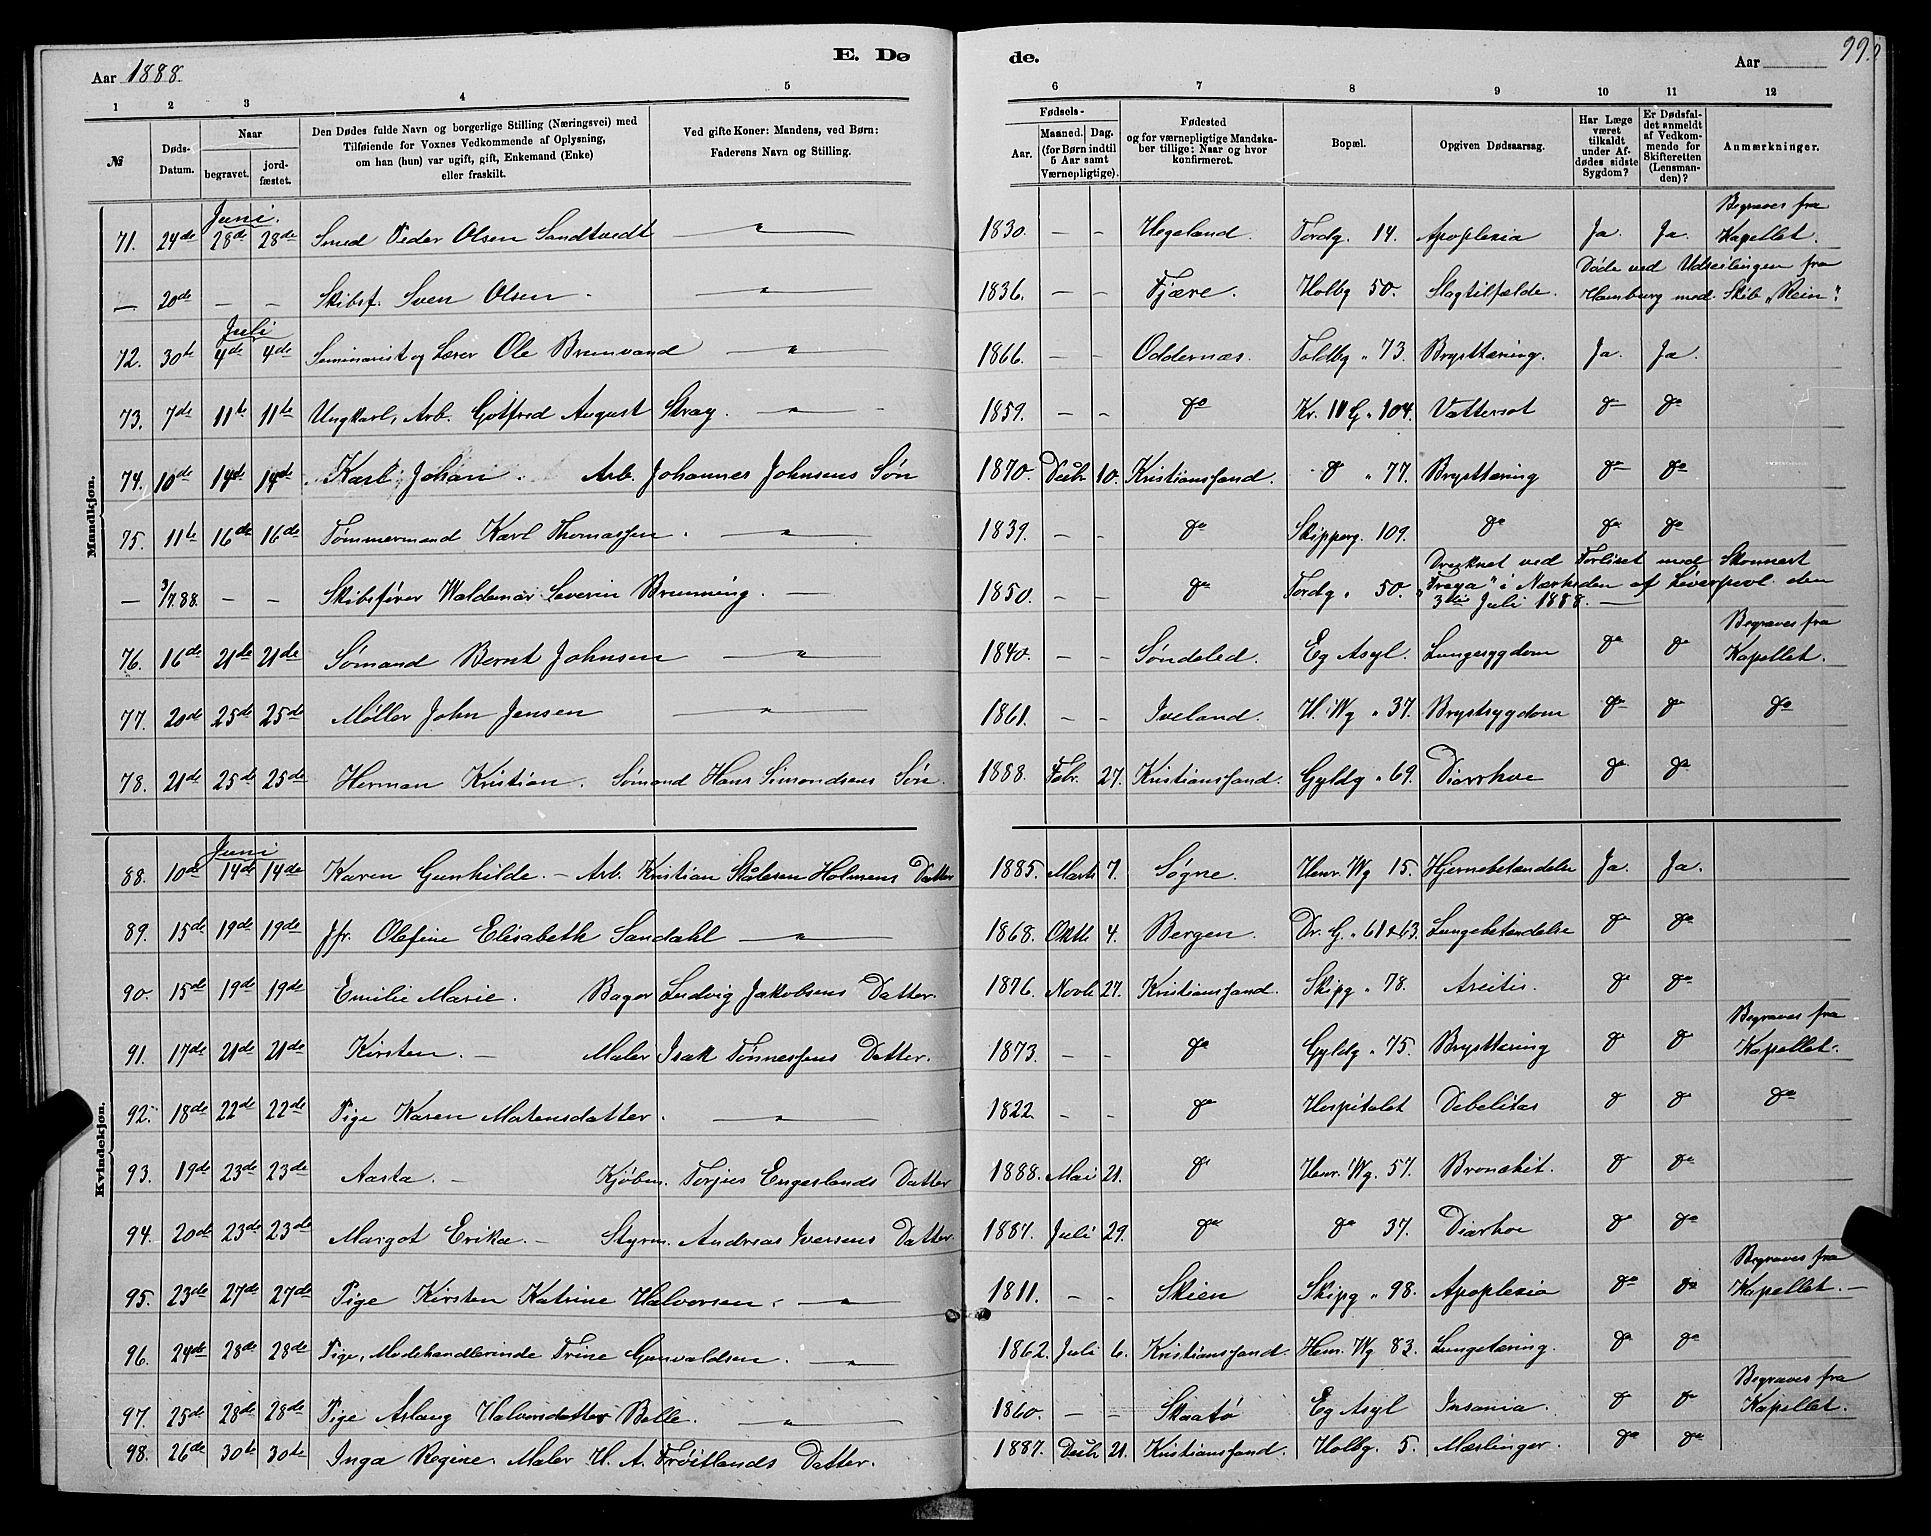 Aar 1888. E. Dø de. Aar 99.
1 2 3 4 5 6 7 8 9 10 11 12
№ Døds-Datum. Naar begravet. jordfæstet. Den Dødes fulde Navn og borgerlige Stilling (Næringsvei) med Tilføiende for Voxnes Vedkommende af Oplysning, om han (hun) var ugift, gift, Enkemand (Enke) eller fraskilt. Ved gifte Koner: Mandens, ved Børn: Faderens Navn og Stilling. Fødsels- Aar. Maaned. Dag. (for Børn indtil 5 Aar samt Værnepligtige). Fødested og for værnepligtige Mandskaber tillige: Naar og hvor konfirmeret. Bopæl. Opgiven Dødsaarsag. Har Læge været tilkaldt under Afdødes sidste Sygdom? Er Dødsfaldet anmeldt af Vedkommende for Skifteretten (Lensmanden)? Anmærkninger.
Mandkjøn.
Juni.
71. 24de 28de 28de Smed Peder Olsen Sandtvedt " 1830. - - Hegeland. Tordg. 14. Apoplexia Ja. Ja. Begraves fra Kapellet.
— 20de - - Skibsf. Sven Olsen. " 1836. - - Fjære. Holbg 50. Slagtilfælde. Døde ved Udseilingen fra Hamburg med Skib "Rein".
Juli
72. 30te 4de 4de Seminarist og Lærer Ole Brunvand " 1866. - - Oddernæs. Toldbg " 73. Brysttæring. Ja. Ja.
73. 7de 11te 11te Ungkarl, Arb. Gotfred August Stray. " 1859. - - do Kr. IV G. " 104. Vattersot do do
74. 10de 14de 14de Karl Johan. Arb. Johannes Johnsens Søn 1870. Decbr 10. Kristianssand. do " 77. Brysttæring do do
75. 11te 16de 16de Tømmermand Karl Thomassen. " 1839. - - do Skipperg. 109. do do do
— 3/7.88. - - Skibsfører Waldemar Severin Brunning. — 1850. - - do Tordg. 50. Druknet ved Forliset med Skonnert "Freya" i Nærheden af Liverpool den 3die Juli 1888. —
76. 16de 21de 21de Sømand Bernt Johnsen " 1840. - - Søndeled. Eg Asyl. Lungesygdom do do Begraves fra Kapellet.
77. 20de 25de 25de Møller John Jensen " 1861. - - Iveland. H. Wg " 37. Brystsygdom do do do
78. 21de 25de 25de Herman Kristian. Sømand Hans Simondsens Søn. 1888. Febr. 27. Kristianssand. Gyldg " 69. Diarrhoe do do
Kvindekjøn.
Juni
88. 10de 14de 14de Karen Gunhilde. - Arb. Kristian Stålesen Holmens Datter 1885. Marts 7. Søgne. Henr. Wg 15. Hjernebetændelse Ja. Ja.
89. 15de 19de 19de Jfr. Olefine Elisabeth Sandahl " 1868. Oktb 4. Bergen. Dr. G. " 61 & 63. Lungebetændelse do do
90. 15de 19de 19de Emilie Marie. Bager Ludvig Jakobsens Datter. 1876. Novb 27. Kristianssand. Skipg " 78. do do
91. 17de 21de 21de Kirsten. - Maler Isak Tønnessens Datter. 1873. - - do Gyldg " 75. Brysttæring do do Begraves fra Kapellet.
92. 18de 22de 22de Pige Karen Matensdatter. " 1822. - - do Hospitalet Debelitas do do do
93. 19de 23de 23de Aasta. - Kjøbm. Torjus Engeslands Datter 1888. Mai 21. do Henr. Wg. 57. Bronchit. do do
94. 20de 23de 23de Margot Erika. - Styrm. Andreas Iversens Datter. 1887. Juli 29. do do 37. Diarhoe do do
95. 23de 27de 27de Pige Kirsten Katrine Halvorsen. " 1811. - - Skien Skipg " 98. Apoplexia do do Begraves fra Kapellet. —
96. 24de 28de 28de Pige, Modehandlerinde Trine Gunvaldsen. " 1862. Juli 6. Kristianssand. Henr. Wg 83. Lungetæring. do do
97. 25de 28de 28de Pige Aslaug Halvorsdatter Belle. " 1860. - - Skaatø Eg Asyl Insania. do do Begraves fra Kapellet.
98. 26de 30te 30te Inga Regine. Maler H. A. Frøitlands Datter. 1887. Decbr 21. Kristianssand. Holbg. 5. Mæslinger. do do